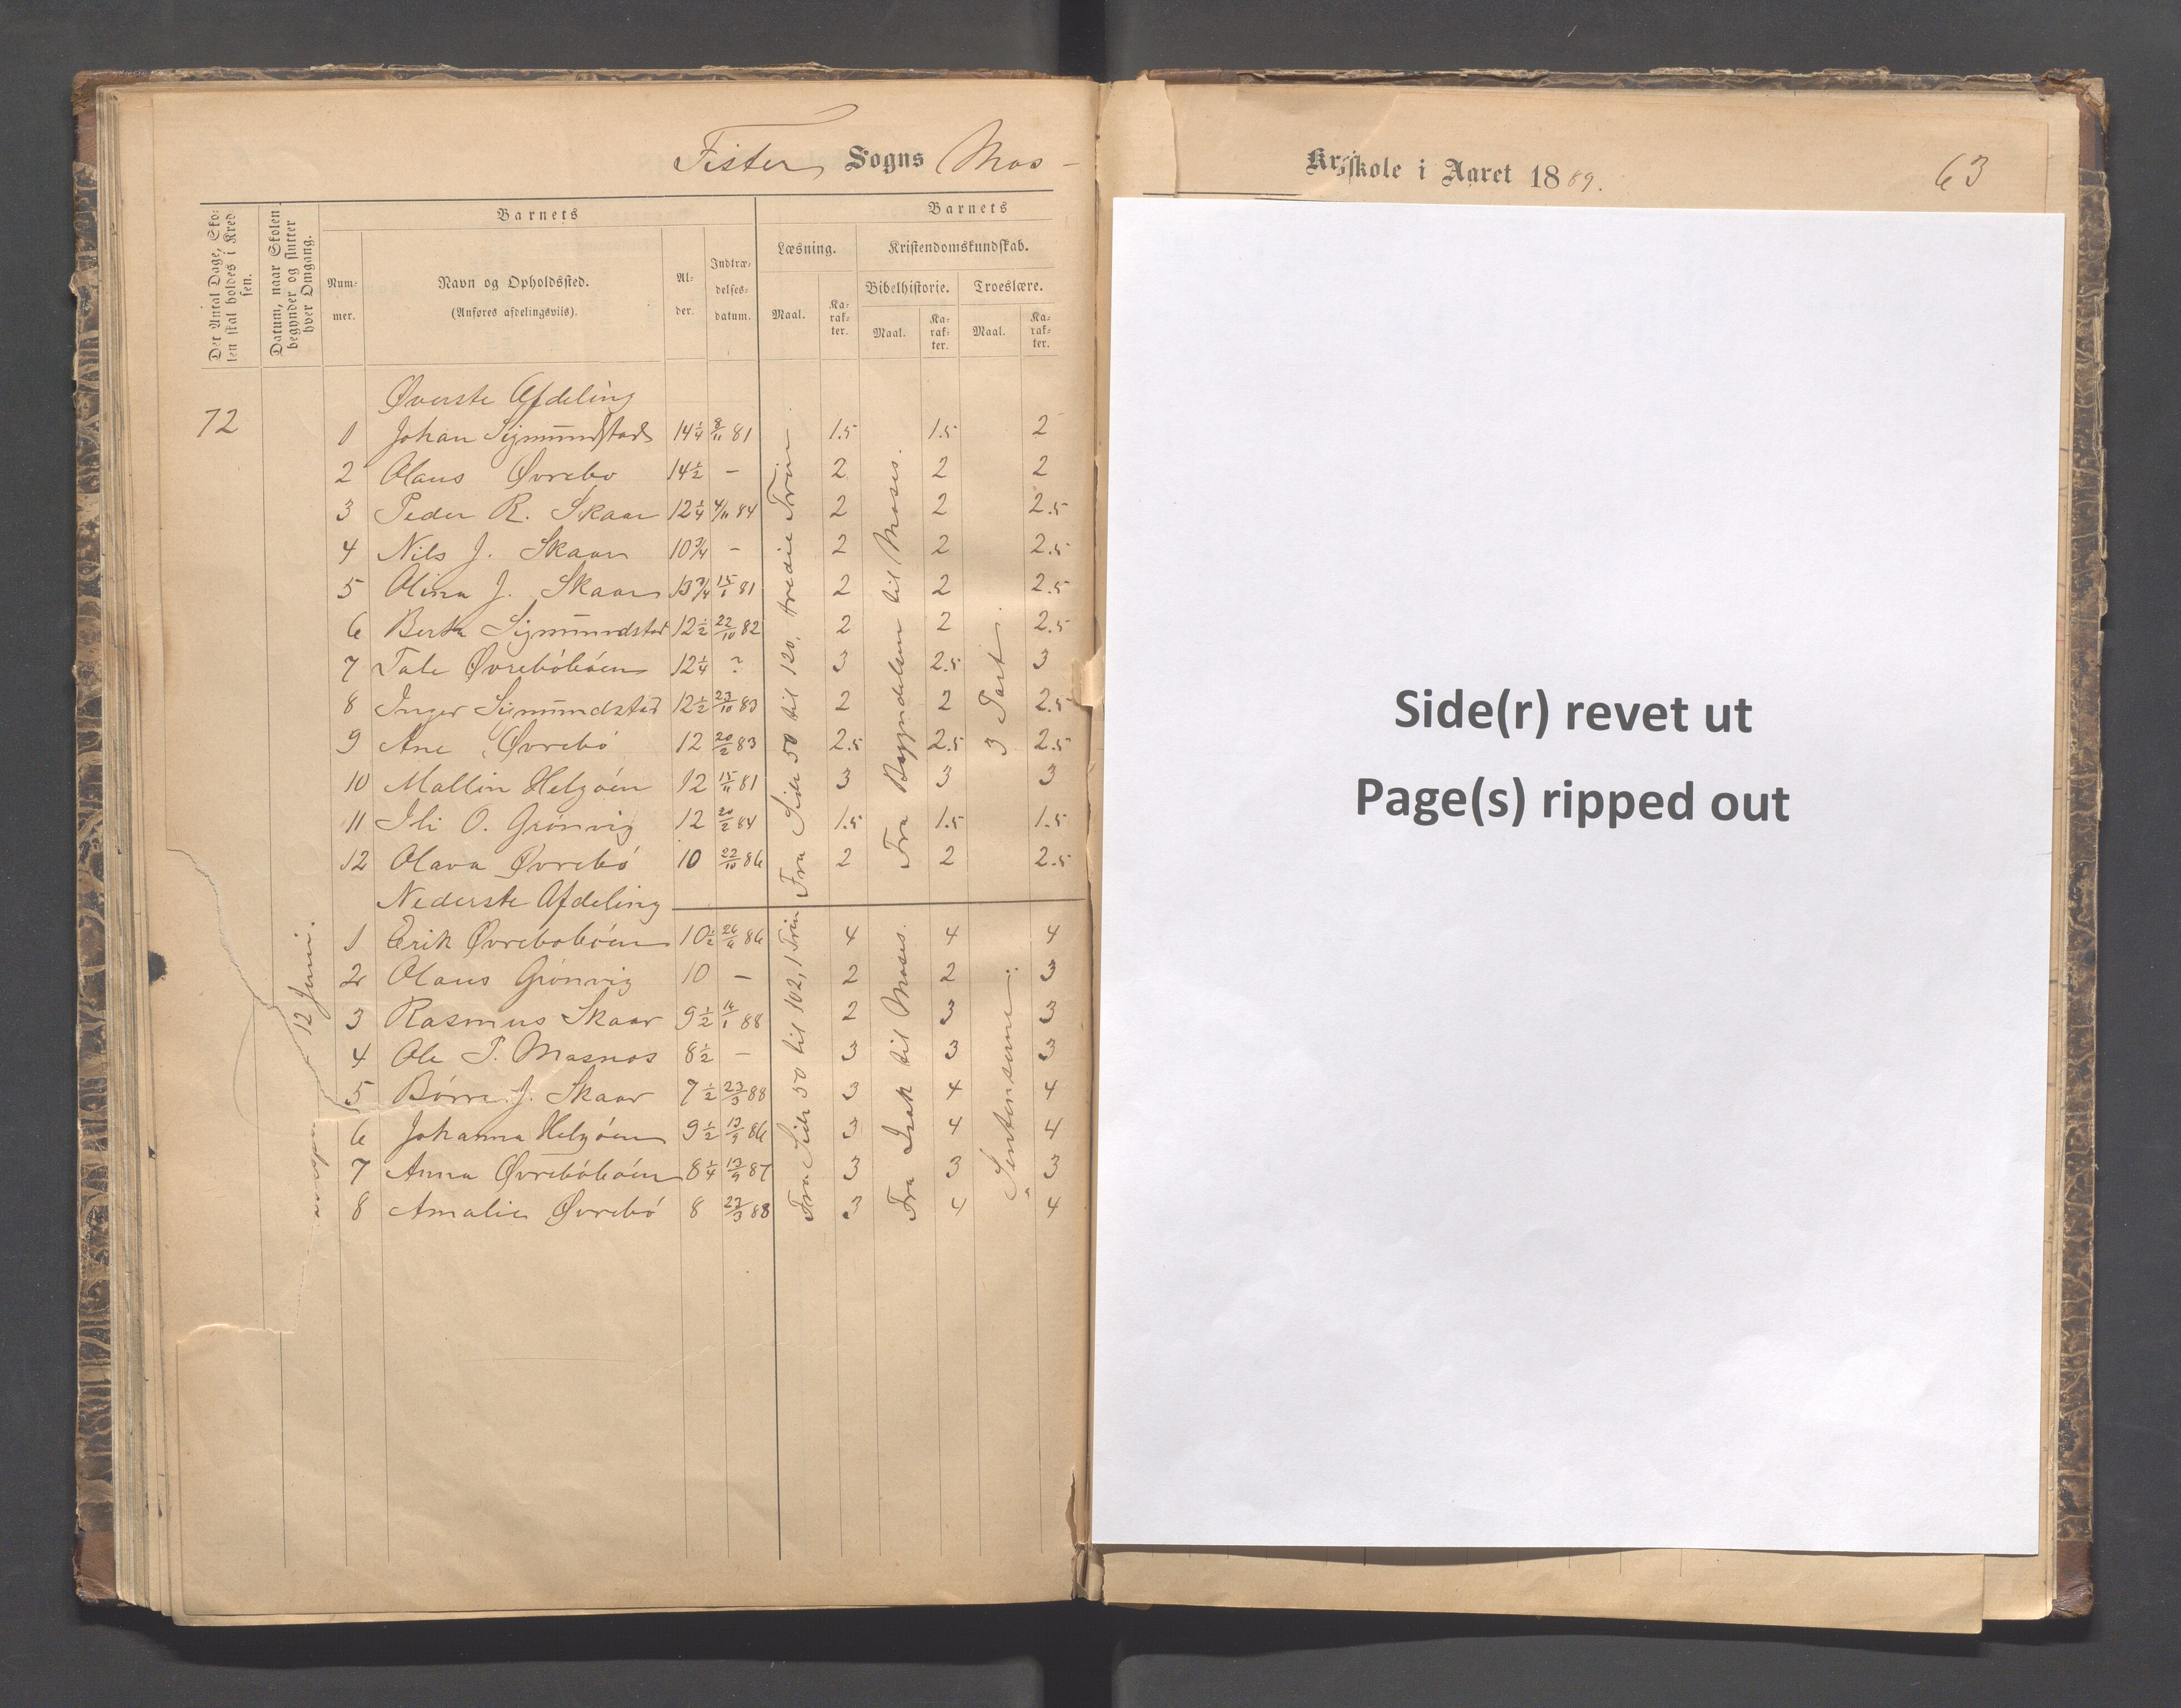 Fister Sogns Mos-
Kredsskole i Aaret 1889.
63
Det Antal Dage, Skolen skal holdes i Kredsen.
Datum, naar Skolen begynder og slutter hver Omgang.
Barnets
Barnets
Nummer.
Navn og Opholdssted.
(Anføres afdelingsviis).
Alder.
Indtrædelsesdatum.
Læsning.
Kristendomskundskab.
Bibelhistorie. Troeslære.
Maal. Karakter. Maal. Karakter. Maal. Karakter.
Øverste Afdeling
72
1 Johan Sigmundstad 14 1/4 8/11 81 1.5 1.5 2
2 Olaus Øvrebø 14 1/2 - 2 2 2
3 Peder R. Skaar 12 1/4 4/11 84 2 2 2.5
4 Nils J. Skaar 10 3/4 - 2 2 2.5
5 Olina J. Skaar 13 3/4 15/6 81 2 2 2.5
6 Berta Sigmundstad 12 1/2 22/10 82 2 2 2.5
7 Tale Øvrebøbøen 12 1/4 ? 3 2.5 3
8 Inger Sigmundstad 12 1/2 23/10 83 2 2 2.5
9 Ane Øvrebø 12 20/2 83 2.5 2.5 2.5
10 Mallin Helgøen 12 15/11 81 3 3 3
11 Ili O. Grønvig 12 20/2 84 1.5 1.5 1.5
12 Olava Øvrebø 10 22/10 86 2 2 2.5
Fra Side 50 til 120, tredie Trin
Fra Begyndelsen til Moses.
3 Part.
Nederste Afdeling
1 Erik Øvrebøbøen 10 1/2 26/6 86 4 4 4
2 Olaus Grønvig 10 - 2 2 3
3 Rasmus Skaar 9 1/2 14/1 88 2 3 3
4 Ole P. Masnos 8 1/2 - 3 3 3
5 Børre J. Skaar 7 1/2 23/3 88 3 4 4
6 Johanna Helgøen 9 1/2 13/9 86 3 4 4
7 Anna Øvrebøbøen 8 1/4 13/9 87 3 3 3
8 Amalie Øvrebø 8 23/3 88 3 4 4
12 Juni.
Fra Side 50 til 102, 1 Trin
Fra Isak til Moses.
Sentenserne
Side(r) revet ut
Page(s) ripped out